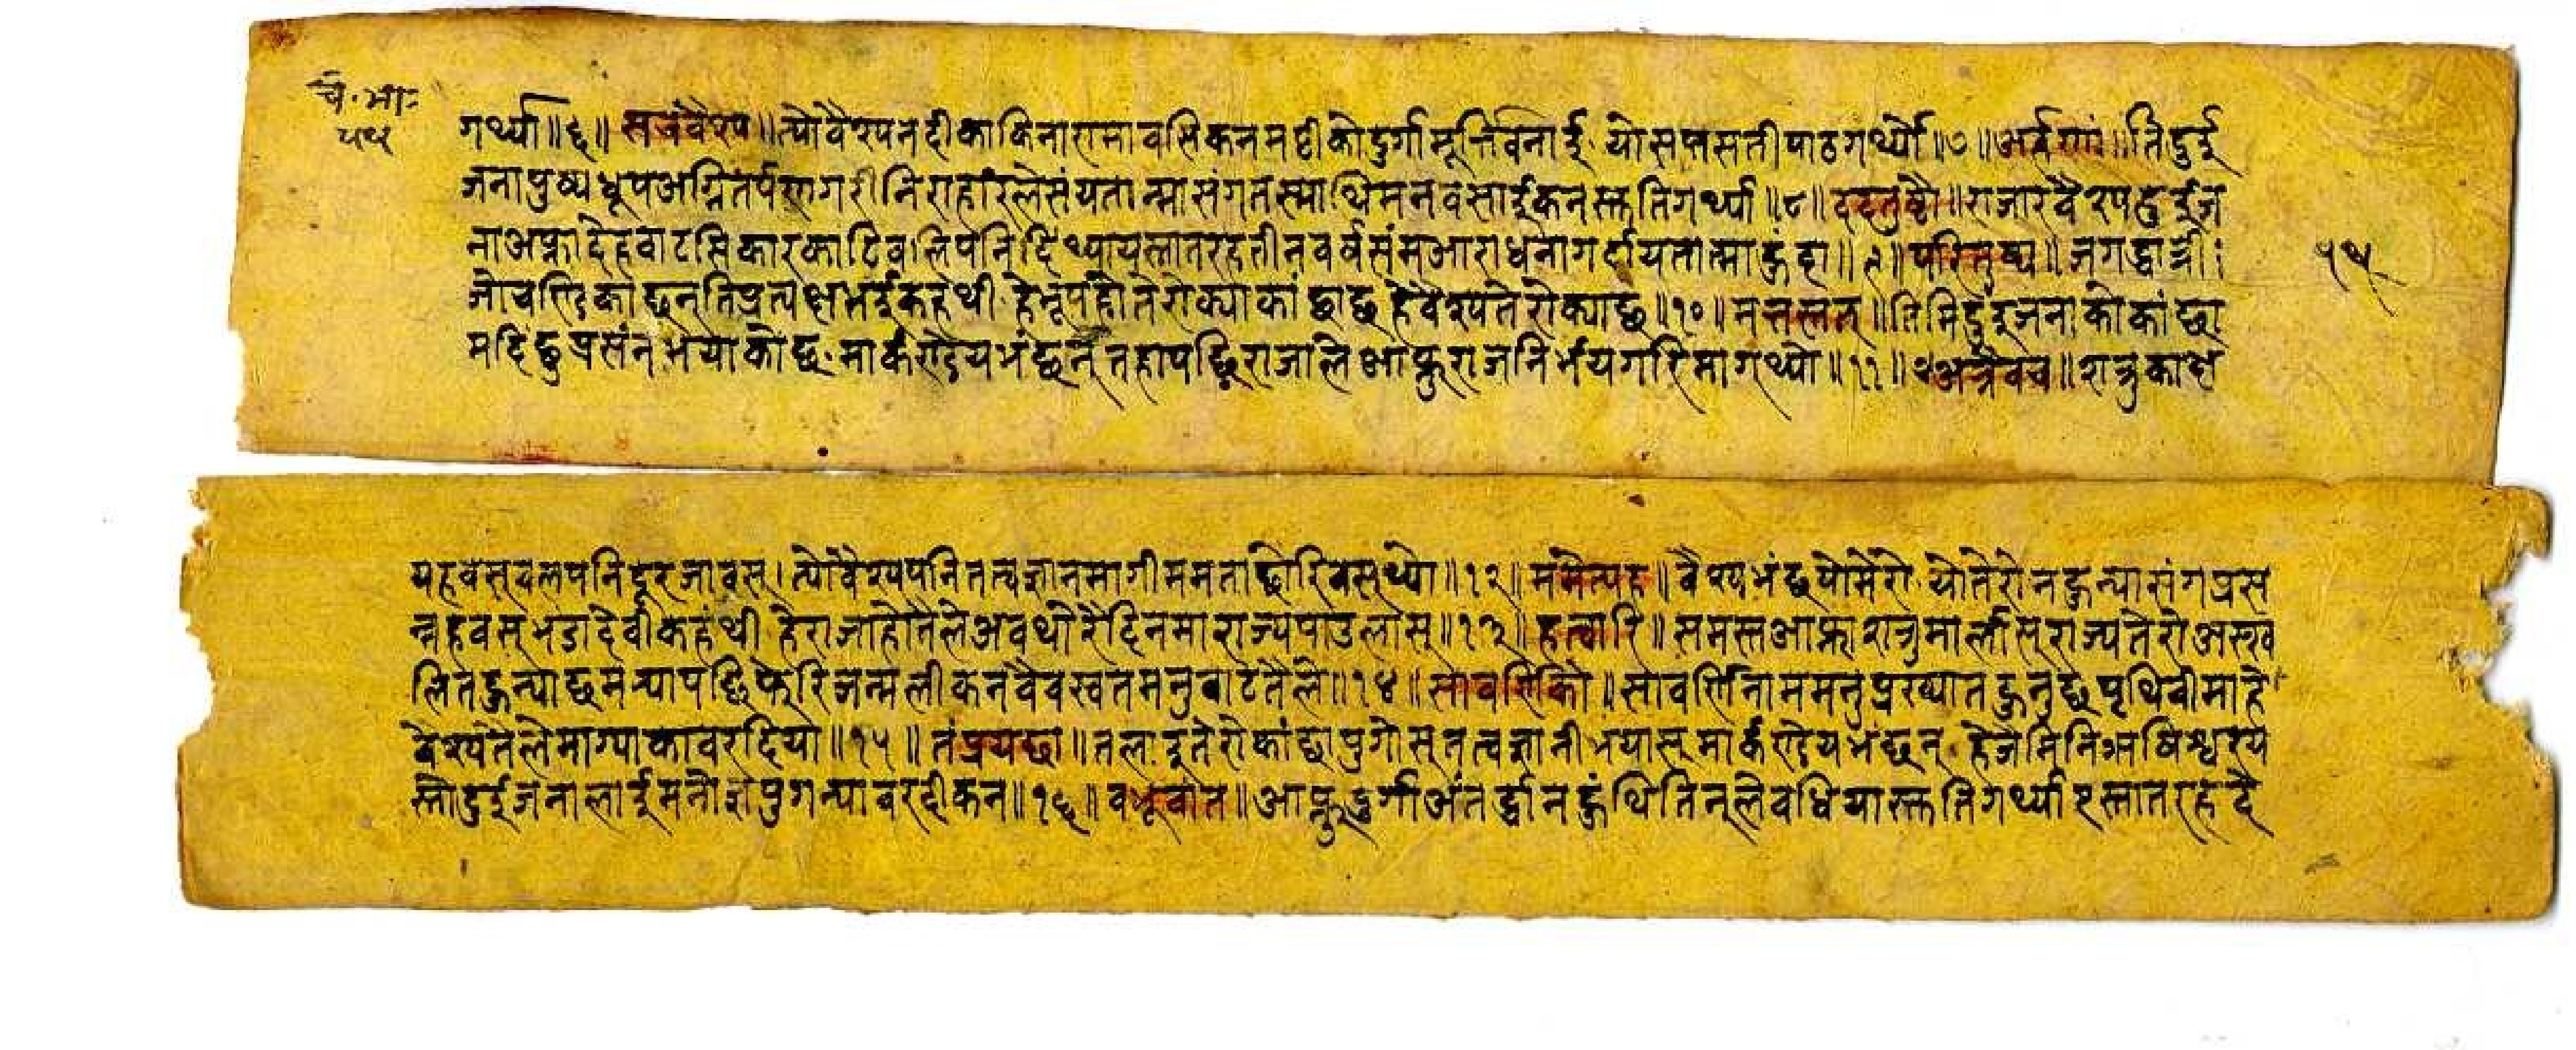 चं.भा.
५५
गर्थ्या॥६॥सजवैश्य॥त्यो वैश्यनदीका किनारामा वसिकन मट्टीको दुर्गामूर्त्ति वनाई यो सप्तसती पाठ गर्थ्यो॥७॥अर्हणां॥ति दुई
जना पुष्प धूप अग्नितर्पण गरी निराहारले संयतात्मा संग तस्माथि मन वसाईकन स्तुति गर्थ्या॥८॥ददतुष्टौ॥राजा र वैश्य दुईज
ना अफ्ना देहवाट सिकार काटि वलि पनि दिथ्या यस्ता तरहतीन वर्षसंम आराधना गर्दा यतात्मा हुंदा॥९॥परितुष्य॥जगद्धात्री
जो चण्डिका छन् ति प्रत्यक्ष भई कहंथी हे नृप हो तेरो क्या कांछा छ हे वैश्य तेरो क्या छ॥१०॥मत्तस्तत्॥तिमि दुई जनाको कांछा
म दिंछु प्रसंन भयाको छु मार्कण्डेय भंछन् तहापछि राजाले आफ्नु राज निर्भय गरि माग्थ्यो॥११॥अत्रैवच॥शत्रुका क्षे
५५
य हवस् वल पनि दूर जावस्। त्यो वैश्य पनि तत्वज्ञान मागी ममता छोरि वस्थ्यो॥१२॥ममेत्यह॥वैश्य भंछ यो मेरो यो तेरो न हुन्या संग प्रस
न्न हवस् भंडा देवी कहंथी हे राजा हो तैले अव थोरै दिनमा राज्य पाउलास्॥१३॥हत्वारि॥समस्त आफ्ना शत्रु मार्लास् राज्य तेरो अस्ख
लित हुन्या छ मर्‍यापछि फेरि जन्म लीकन वैवस्वत मनुवाट तैले॥१४॥सावर्णिको॥सावर्णि नाम मनु प्ररख्यात हुनुछ पृथिवीमा हे
वैश्य तैले माग्याका वर दियां॥१५॥तं प्रयछा॥तलाई तेरो कांछा पुगोस् तत्वज्ञानी भयास् मार्कण्डेय भंछन् हे जैमिनि ऋषिश्वर य
स्तो दुईजनालाई मनोज्ञ पुगन्या वर दीकन॥१६॥वभूवांत॥आफु दुर्गा अंतर्द्धान हुंथि तिनले वधिया स्तुति गर्थ्या यस्ता तरह दे